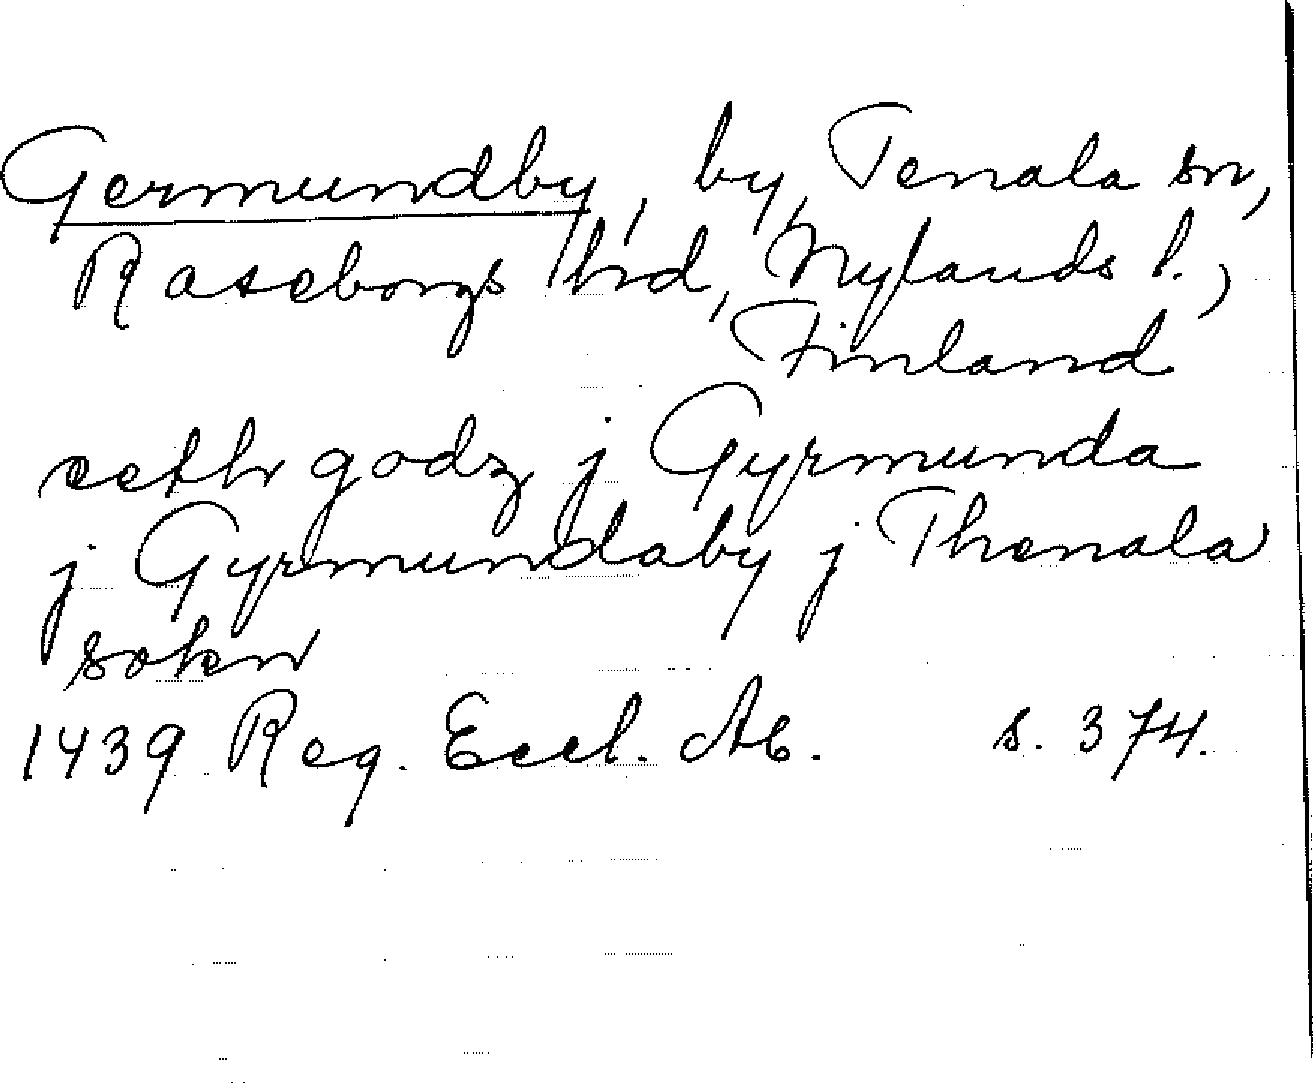 Germundby, by, Tenala sn,
Raseborgs hrd, Nylands l.,
Finland
eeth godz j Gyrmunda
j Gyrmundaby j Thenala
sokn
1439 Reg. Eccl. Ab. s. 374.